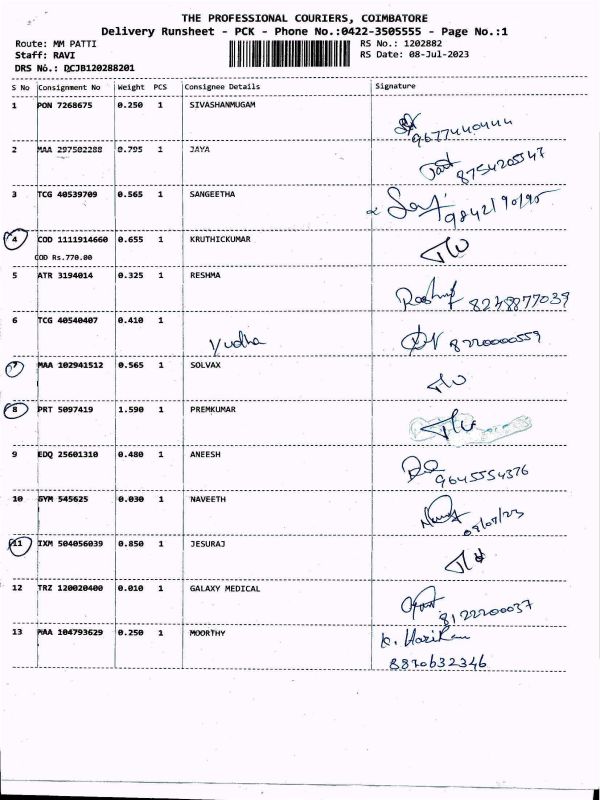 THE PROFESSIONAL COURIERS, COIMBATORE
Delivery Runsheet - PCK - Phone No.:0422-3505555 - Page No.:1
Route: MM PATTI
Staff: RAVI
DRS No.: DCJB120288201
RS No.: 1202882
RS Date: 08-Jul-2023
S No Consignment No Weight PCS Consignee Details Signature
1 PON 7268675 0.250 1 SIVASHANMUGAM
9677440444
2 MAA 297502288 0.795 1 JAYA
8754205547
3 TCG 40539709 0.565 1 SANGEETHA
9842190195
4 COD 1111914660 0.655 1 KRUTHICKUMAR
COD Rs.770.00
5 ATR 3194014 0.325 1 RESHMA
8248877039
6 TCG 40540407 0.410 1
Yudha
8220000559
7 MAA 102941512 0.565 1 SOLVAX
8 PRT 5097419 1.590 1 PREMKUMAR
9 EDQ 25601310 0.480 1 ANEESH
9645554376
10 GYM 545625 0.030 1 NAVEETH
09/07/23
11 IXM 504056039 0.850 1 JESURAJ
12 TRZ 120020400 0.010 1 GALAXY MEDICAL
8122200037
13 MAA 104793629 0.250 1 MOORTHY
8870632346